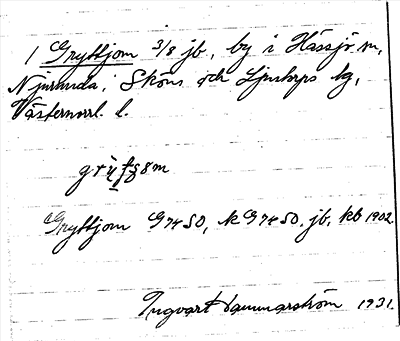 1 Gryttjom 3/8 jb, by i Hässjö m,
Njurunda, Sköns och Ljustorps tg,
Västernorrl. l.
Gryttjom G 74 SO, k G 74 SO. jb, kb 1902.
Ingvart Hammarström 1931.